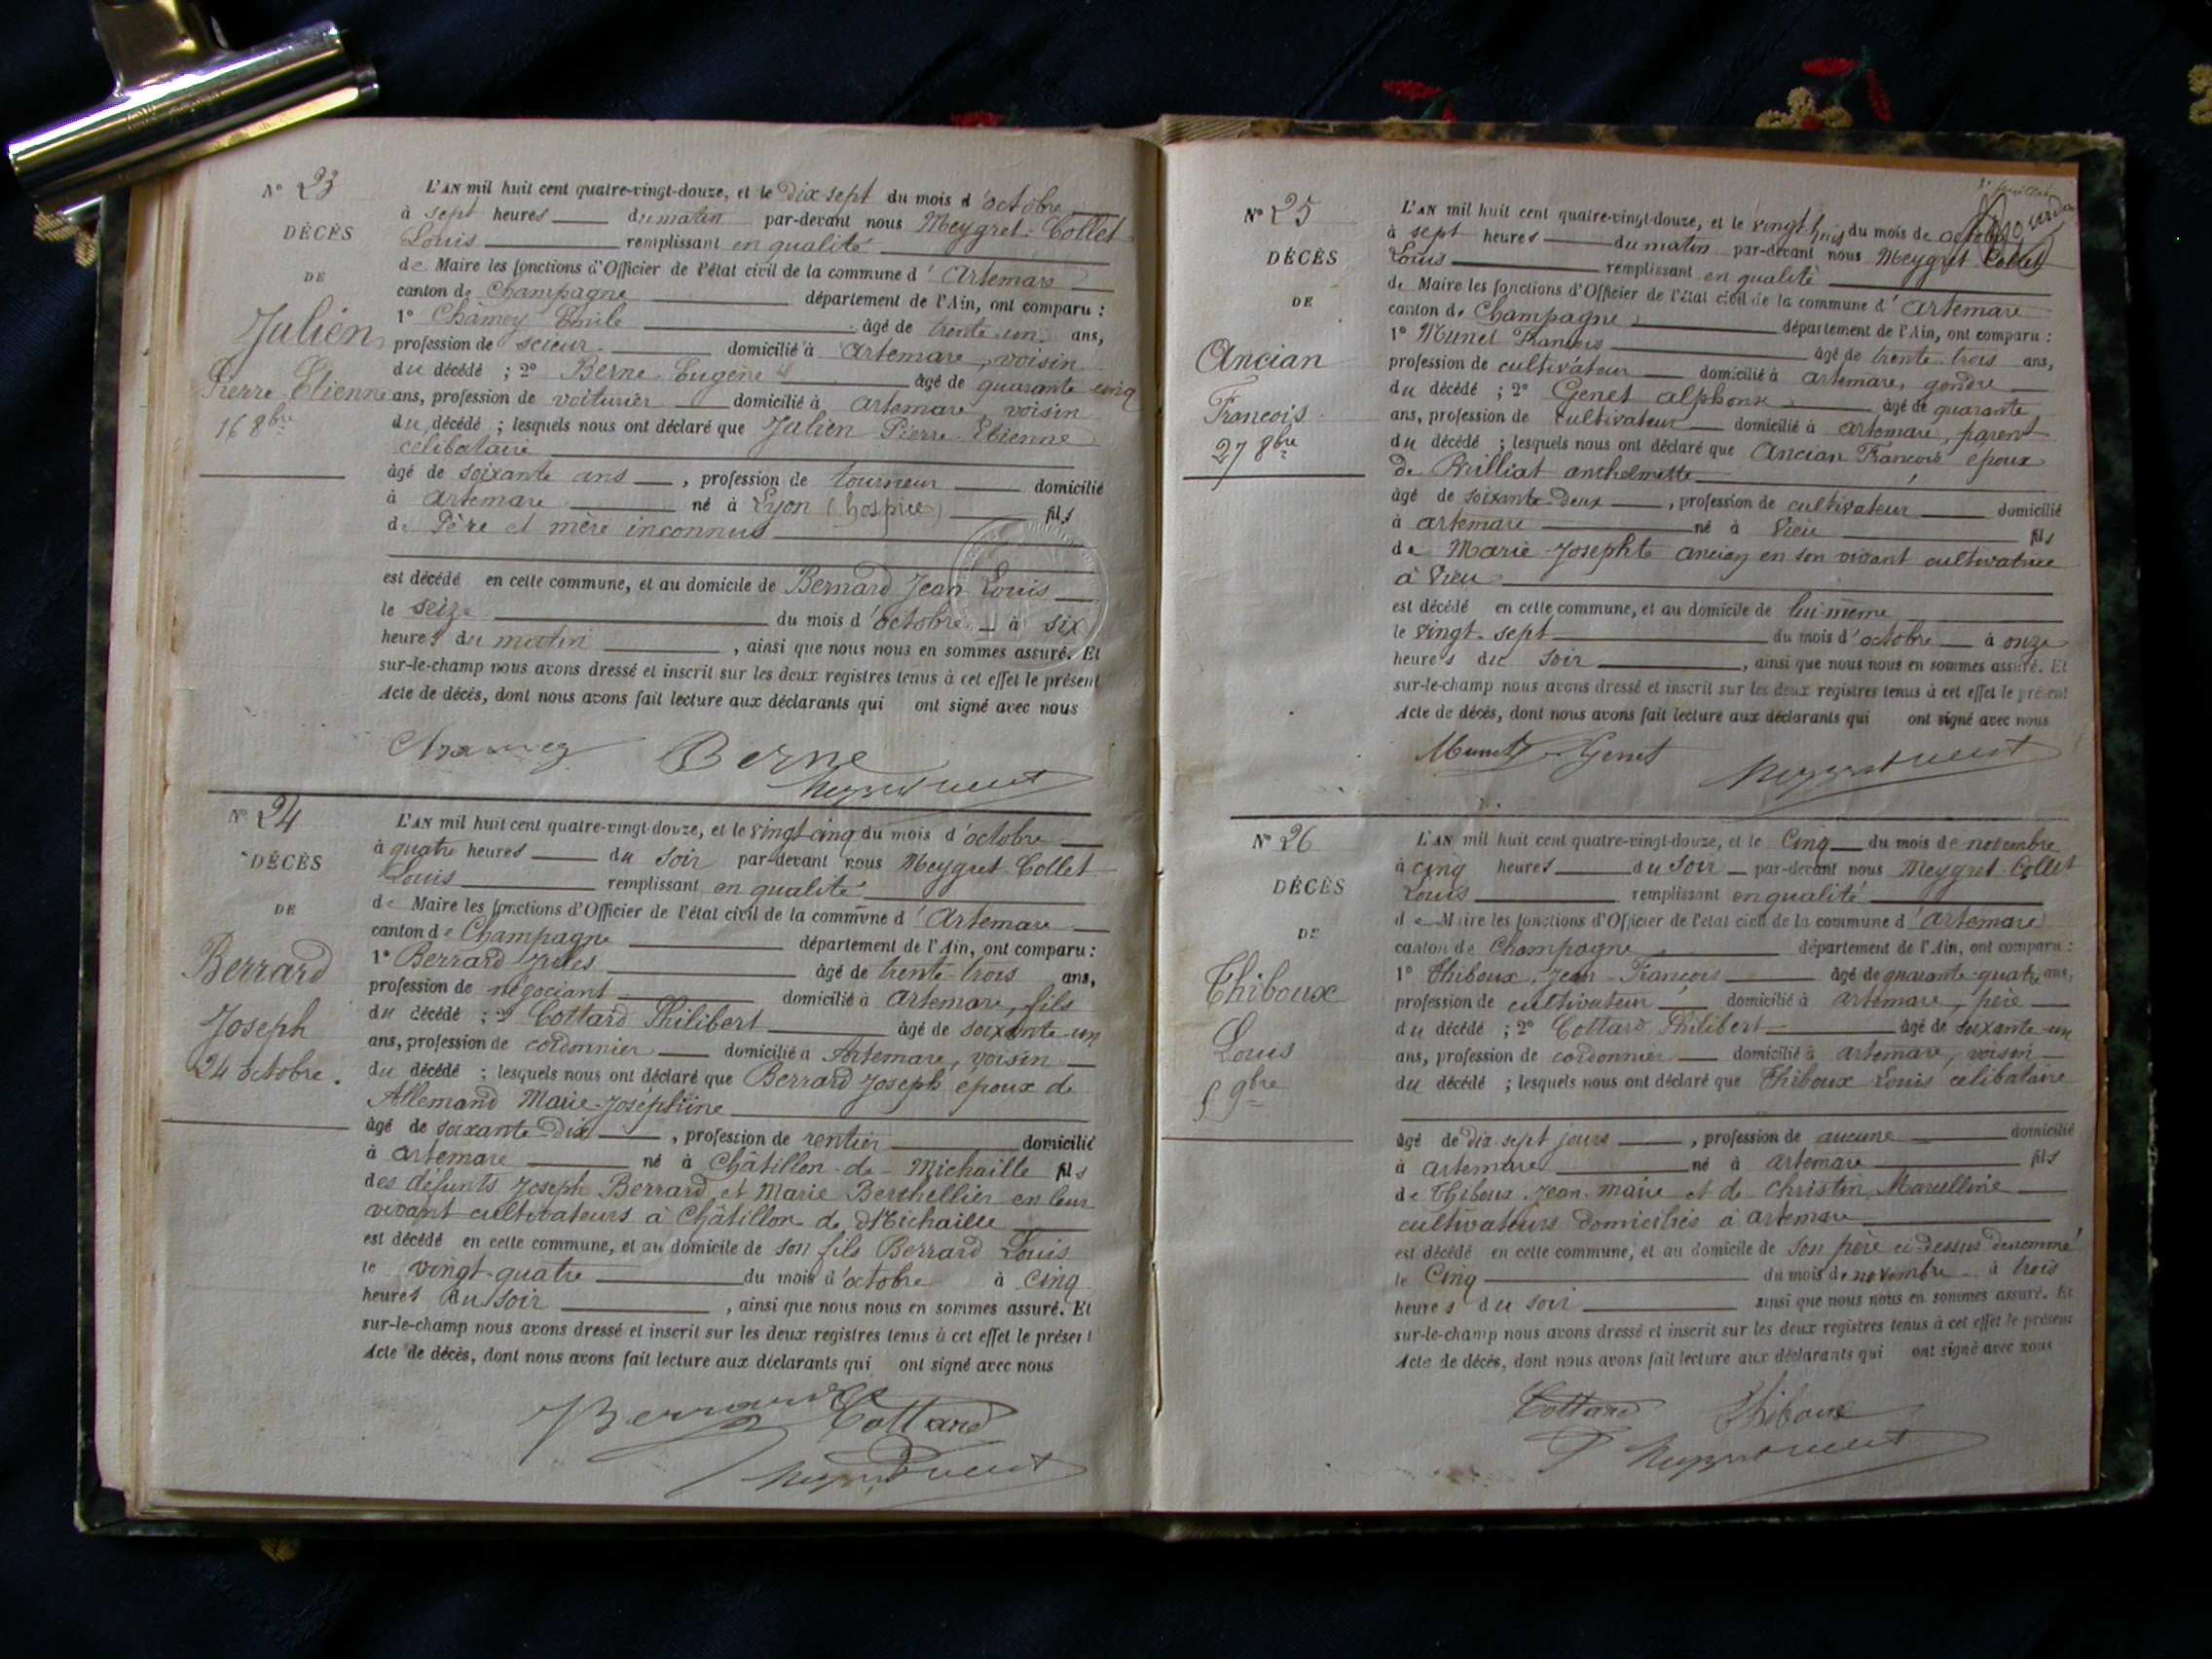 N° 23
DÉCÈS
DE
Julien
Pierre Etienne
16 8bre
L'AN mil huit cent quatre-vingt-douze, et le dix sept du mois d'octobre
à sept heures du matin par-devant nous Meygret-Collet
Louis remplissant en qualité
de Maire les fonctions d'Officier de l'état civil de la commune d'Artemare
canton de Champagne département de l'Ain, ont comparu :
1° Chamey Emile âgé de trente-un ans,
profession de scieur domicilié à Artemare, voisin
du décédé ; 2° Berne Eugène âgé de quarante cinq
ans, profession de voiturier domicilié à Artemare, voisin
du décédé ; lesquels nous ont déclaré que Julien Pierre-Etienne
célibataire
âgé de soixante ans, profession de tourneur domicilié
à Artemare né à Lyon (hospice) fils
de Père et mère inconnus
est décédé en cette commune, et au domicile de Bernard Jean Louis
le seize du mois d'octobre à six
heures du matin, ainsi que nous nous en sommes assuré. Et
sur-le-champ nous avons dressé et inscrit sur les deux registres tenus à cet effet le présent
Acte de décès, dont nous avons fait lecture aux déclarants qui ont signé avec nous
Chamey Berne
N° 24
DÉCÈS
DE
Berrard
Joseph
24 octobre.
L'AN mil huit cent quatre-vingt-douze, et le vingt cinq du mois d'octobre
à quatre heures du soir par-devant nous Meygret-Collet
Louis remplissant en qualité
de Maire les fonctions d'Officier de l'état civil de la commune d'Artemare
canton de Champagne département de l'Ain, ont comparu :
1° Berrard Jules âgé de trente-trois ans,
profession de négociant domicilié à Artemare, fils
du décédé ; 2° Cottard Philibert âgé de soixante-un
ans, profession de cordonnier domicilié à Artemare, voisin
du décédé ; lesquels nous ont déclaré que Berrard Joseph époux de
Allemand Marie-Josephine
âgé de soixante-dix, profession de rentier domicilié
à Artemare né à Châtillon-de-Michaille fils
des défunts Joseph Berrard et Marie Berthellier en leur
vivant cultivateurs à Châtillon de Michaille
est décédé en cette commune, et au domicile de son fils Berrard Louis
le vingt-quatre du mois d'octobre à cinq
heures du soir, ainsi que nous nous en sommes assuré. Et
sur-le-champ nous avons dressé et inscrit sur les deux registres tenus à cet effet le présent
Acte de décès, dont nous avons fait lecture aux déclarants qui ont signé avec nous
Berrard Cottard
N° 25
DÉCÈS
DE
Ancian
Francois
27 8bre
L'AN mil huit cent quatre-vingt-douze, et le vingt huit du mois de octobre
à sept heures du matin par-devant nous Meygret-Collet
Louis remplissant en qualité
de Maire les fonctions d'Officier de l'état civil de la commune d'Artemare
canton de Champagne département de l'Ain, ont comparu :
1° Munet François âgé de trente-trois ans,
profession de cultivateur domicilié à Artemare, gendre
du décédé ; 2° Genet alphonse âgé de quarante
ans, profession de cultivateur domicilié à Artemare, parent
du décédé ; lesquels nous ont déclaré que Ancian François époux
de Brilliat anthelmette
âgé de soixante-deux, profession de cultivateur domicilié
à artemare né à Vieu fils
de Marie Josephte ancian en son vivant cultivatrice
à Vieu
est décédé en cette commune, et au domicile de lui-même
le vingt-sept du mois d'octobre à onze
heures du soir, ainsi que nous nous en sommes assuré. Et
sur-le-champ nous avons dressé et inscrit sur les deux registres tenus à cet effet le présent
Acte de décès, dont nous avons fait lecture aux déclarants qui ont signé avec nous
Munet Genet
N° 26
DÉCÈS
DE
Thiboux
Louis
5 9bre
L'AN mil huit cent quatre-vingt-douze, et le Cinq du mois de novembre
à cinq heures du soir par-devant nous Meygret-Collet
Louis remplissant en qualité
de Maire les fonctions d'Officier de l'état civil de la commune d'artemare
canton de Champagne département de l'Ain, ont comparu :
1° Thiboux, Jean-François âgé de quarante-quatre ans,
profession de cultivateur domicilié à artemare, père
du décédé ; 2° Cottard Philibert âgé de soixante-un
ans, profession de cordonnier domicilié à artemare, voisin
du décédé ; lesquels nous ont déclaré que Thiboux Louis célibataire
âgé de dix-sept jours, profession de aucune domicilié
à artemare né à artemare fils
de Thiboux Jean-marie et de Christin Marcelline
cultivateurs domiciliés à artemare
est décédé en cette commune, et au domicile de son père ci-dessus dénommé
le Cinq du mois de novembre à trois
heures du soir ainsi que nous nous en sommes assuré. Et
sur-le-champ nous avons dressé et inscrit sur les deux registres tenus à cet effet le présent
Acte de décès, dont nous avons fait lecture aux déclarants qui ont signé avec nous
Cottard Thiboux